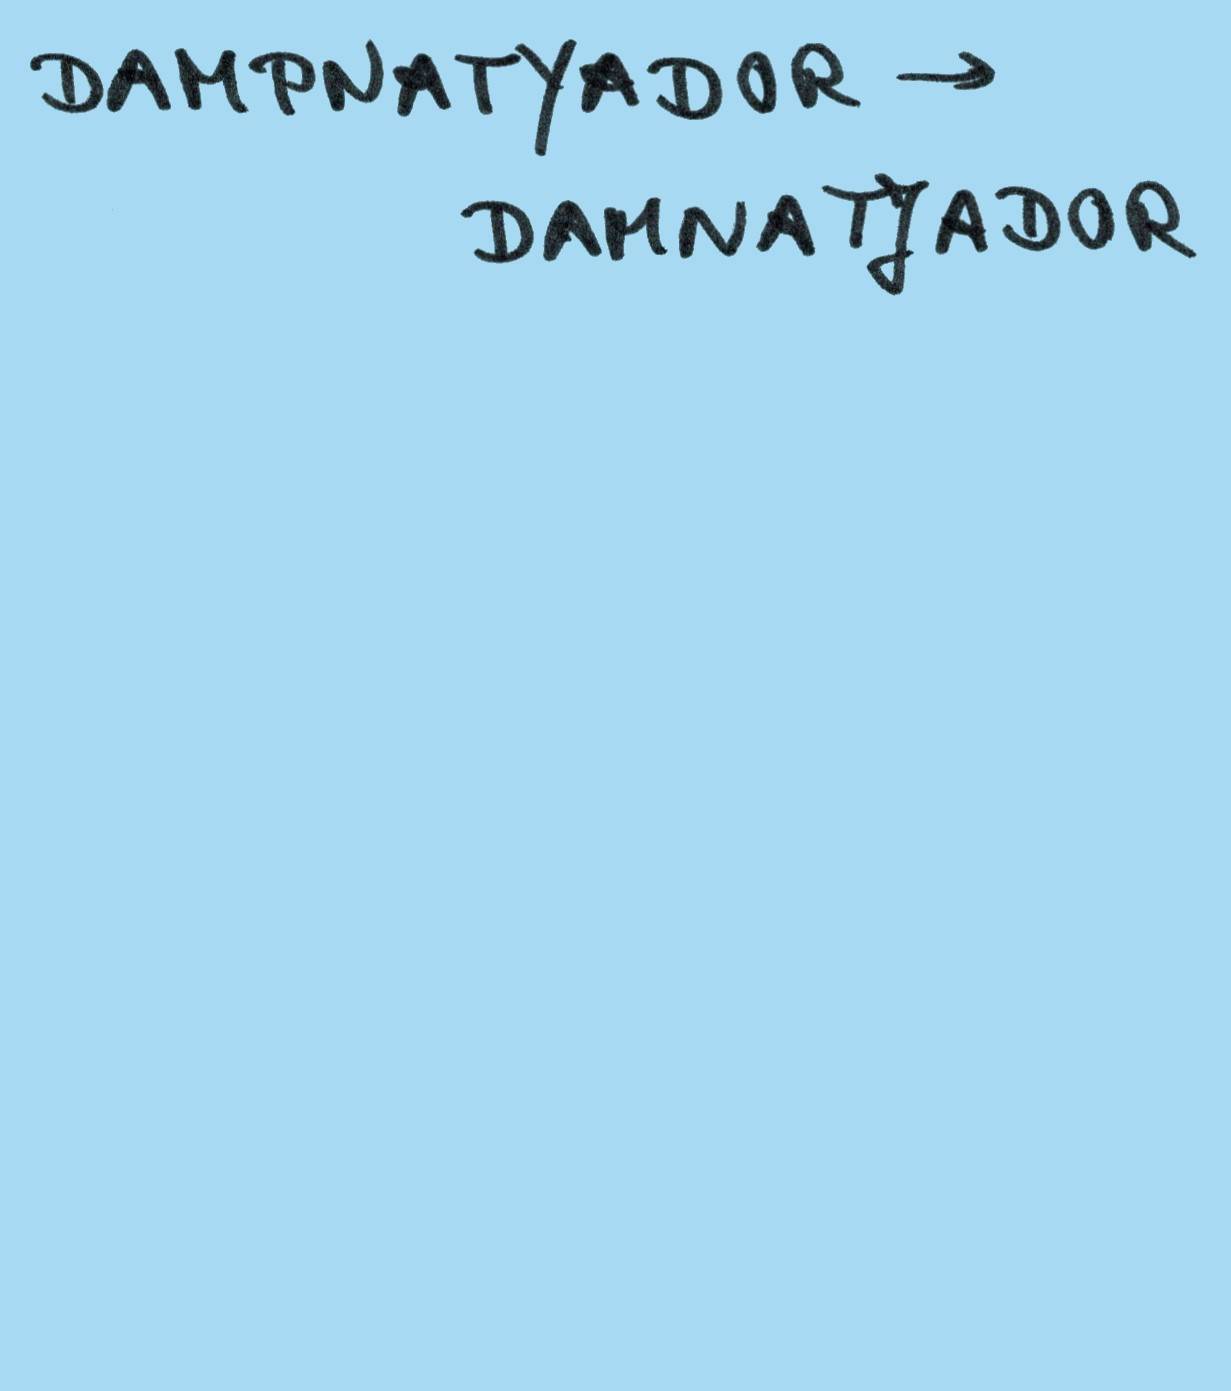 DAMPNATYADOR →
DAMNATJADOR